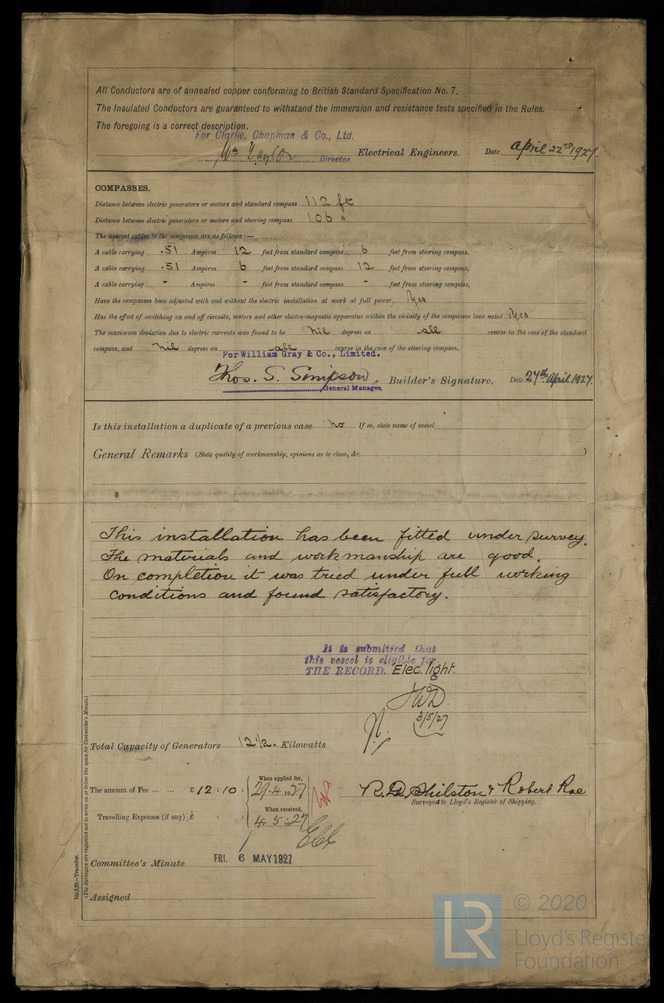 All Conductors are of annealed copper conforming to British Standard Specification No. 7.
The Insulated Conductors are guaranteed to withstand the immersion and resistance tests specified in the Rules.
The foregoing is a correct description.
For Clarke, Chapman & Co., Ltd.
Wm Taylor Director Electrical Engineers. Date April 22nd 1927
COMPASSES.
Distance between electric generators or motors and standard compass 112 ft
Distance between electric generators or motors and steering compass 106 "
The nearest cables to the compasses are as follows:—
A cable carrying .51 Ampères 12 feet from standard compass 6 feet from steering compass.
A cable carrying .51 Ampères 6 feet from standard compass 12 feet from steering compass.
A cable carrying - Ampères - feet from standard compass - feet from steering compass.
Have the compasses been adjusted with and without the electric installation at work at full power, Yes
Has the effect of switching on and off circuits, motors and other electro-magnetic apparatus within the vicinity of the compasses been noted Yes
The maximum deviation due to electric currents was found to be Nil degrees on all course in the case of the standard
compass, and nil degrees on all course in the case of the steering compass.
For William Gray & Co., Limited.
Thos. S. Simpson General Manager. Builder's Signature. Date 27th April 1927.
Is this installation a duplicate of a previous case no If so, state name of vessel
General Remarks (State quality of workmanship, opinions as to class, &c. )
This installation has been fitted under survey.
The materials and workmanship are good.
On completion it was tried under full working
conditions and found satisfactory.
It is submitted that
this vessel is eligible for
THE RECORD. Elec. light.
JWD.
3/5/27
Total Capacity of Generators 12½ Kilowatts
The amount of Fee ... ... £12 : 10 : When applied for, 29.4.1927
Travelling Expenses (if any) £ : : When received, 4.5.1927
R.D. Shilston & Robert Rae
Surveyors to Lloyd's Register of Shipping.
Committee's Minute FRI. 6 MAY 1927
Assigned
(The Surveyors are requested not to write on or below the space for Committee's Minute.)
© 2020
LR
Lloyd's Register
Foundation